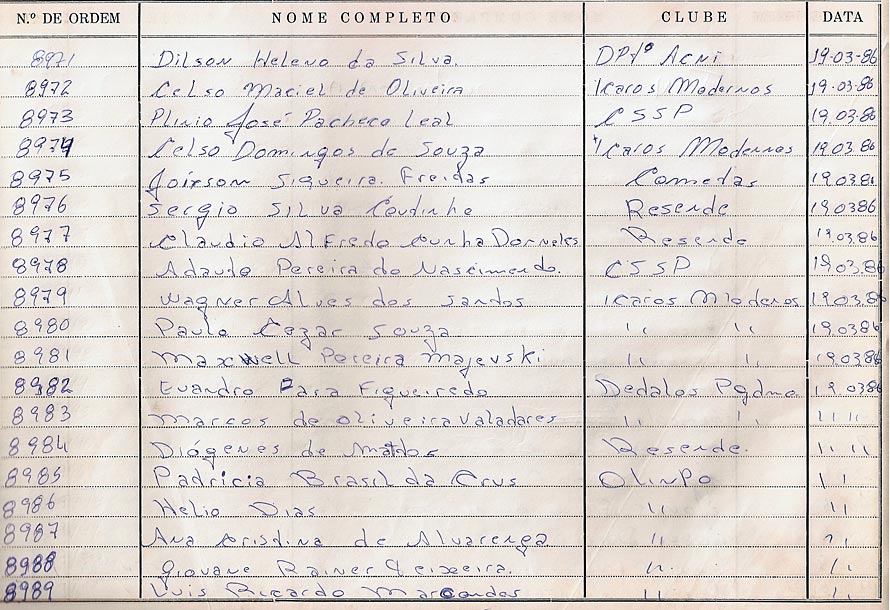 N.º DE ORDEM NOME COMPLETO CLUBE DATA
8971 Dilson Heleno da Silva. DPtº Acni 19-03-86
8972 Celso Maciel de Oliveira Icaros Modernos 19.03.86
8973 Plinio José Pacheco Leal CSSP 19.03.86
8974 Celso Domingos de Souza Icaros Modernos 19.03.86
8975 Joixson Siqueira. Freidas Comedas 19.03.86
8976 Sergio Silva Coudinho Resende 19.0386
8977 Claudio Alfredo Cunha Dorneles Resende 19.03.86
8978 Adaudo Pereira do Nascimendo. CSSP 19.03.86
8979 Wagner Alves dos Sandos Icaros Modernos 19.03.86
8980 Paulo Cezar Souza '' '' 19.0386
8981 Maxwell Pereira Majevski '' '' 19.0386
8982 Evandro Para Figueiredo Dedalos Pgdma 19.0386
8983 Marcos de Oliveira Valadares '' ' '' ''
8984 Diógenes de Mattos Resende. '' ''
8985 Padricia Brasil da Crus Olinpo ' '
8986 Helio Dias '' ''
8987 Ana Crisdina de Alvarenga '' ''
8988 Giovane Rainer Teixeira. ''. ''
8989 Luis Ricardo Marcondes '' ''